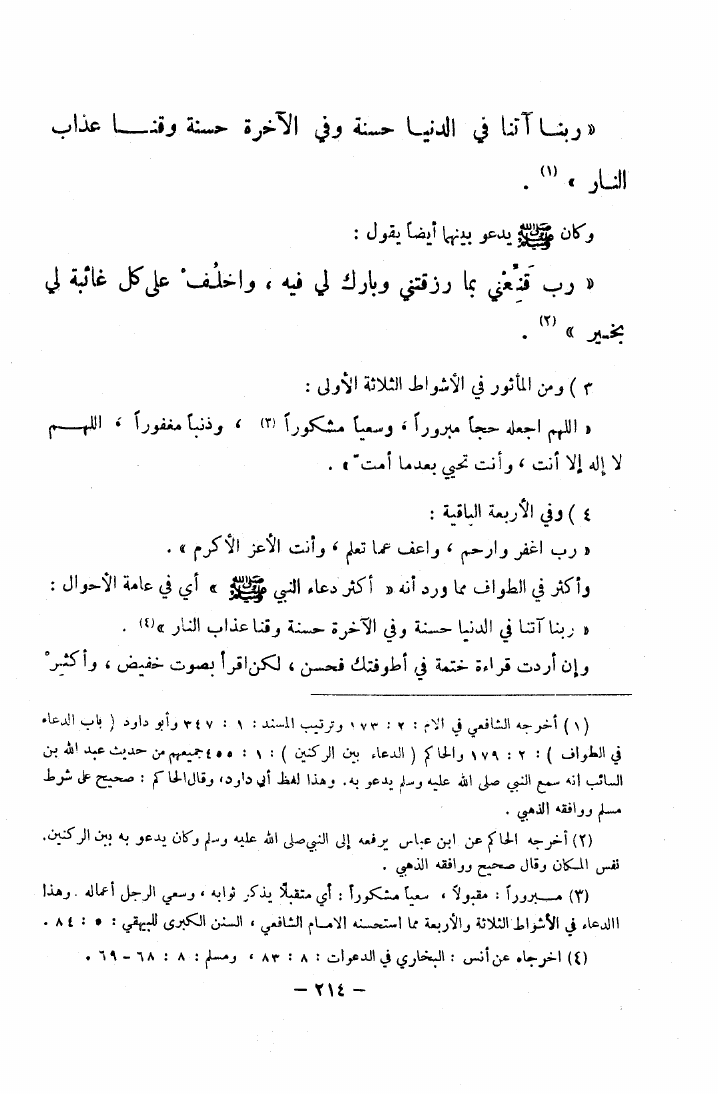 « ربنــا آتنا في الدنيــا حسنة وفي الآخرة حسنة وقنــــا عذاب
النــار » (١) .
وكان ﷺ يدعو بينهما أيضاً يقول :
« رب قَنِّعْني بما رزقتني وبارك لي فيه ، واخلُفْ على كل غائبة لي
بخــير » (٢) .
٣ ) ومن المأثور في الأشواط الثلاثة الأولى :
« اللهم اجعله حجاً مبروراً ، وسعياً مشكوراً (٣) ، وذنباً مغفوراً ، اللهــم
لا إله إلا أنت ، وأنت تحيي بعدما أمتّ » .
٤ ) وفي الأربعة الباقية :
« رب اغفر وارحم ، واعف عما تعلم ، وأنت الأعز الأكرم » .
وأكثر في الطواف مما ورد أنه « أكثر دعاء النبي ﷺ » أي في عامة الأحوال :
« ربنا آتنا في الدنيا حسنة وفي الآخرة حسنة وقنا عذاب النار »(٤) .
وإن أردت قراءة ختمة في أطوفتك فحسن ، لكن اقرأ بصوت خفيض ، وأكثِرْ
(١) أخرجه الشافعي في الام : ٢ : ١٧٣ وترتيب المسند : ١ : ٣٤٧ وأبو داود ( باب الدعاء
في الطواف ) : ٢ : ١٧٩ والحاكم ( الدعاء بين الركنين ) : ١ : ٤٥٥ جميعهم من حديث عبد الله بن
السائب انه سمع النبي صلى الله عليه وسلم يدعو به. وهذا لفظ أبي داود، وقال الحاكم : صحيح على شرط
مسلم ووافقه الذهبي .
(٢) أخرجه الحاكم عن ابن عباس يرفعه إلى النبي صلى الله عليه وسلم وكان يدعو به بين الركنين.
نفس المكان وقال صحيح ووافقه الذهبي .
(٣) مــبروراً : مقبولاً ، سعياً مشكوراً : أي متقبلاً يذكر ثوابه ، وسعي الرجل أعماله . وهذا
االدعاء في الأشواط الثلاثة والأربعة مما استحسنه الامــام الشافعي ، السنن الكبرى للبيهقي : ٥ : ٨٤ .
(٤) اخرجاه عن أنس : البخاري في الدعوات : ٨ : ٨٣ ، ومسلم : ٨ : ٦٨ – ٦٩ .
– ٢١٤ –